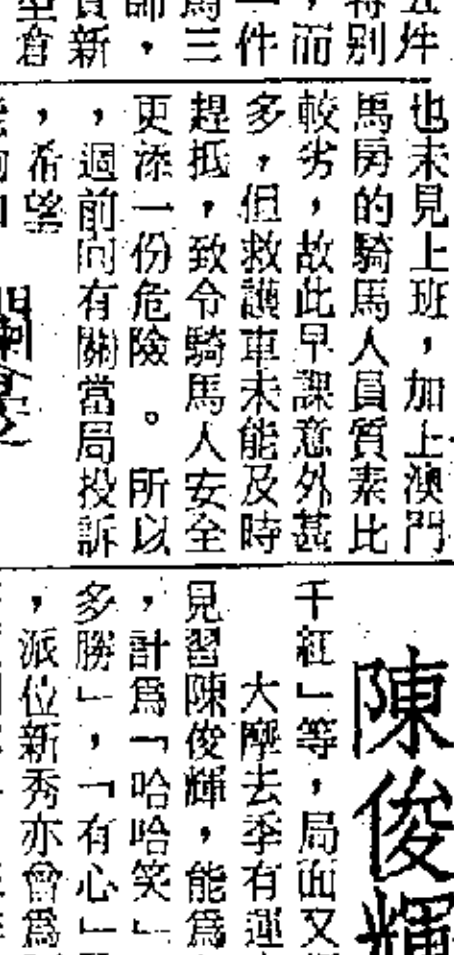 五件
特別
，而
一件
馬三
師，
負新
至倉
也未見上班，加上澳門
馬房的騎馬人員質素比
較劣，故此早課意外甚
多，但救護車未能及時
趕抵，致令騎馬人安全
更添一份危險。所以
，週前向有關當局投訴
，希望
陳俊輝
千紅」等，局面又
大摩去季有運
見習陳俊輝，能爲
，計爲「哈哈笑」
多勝」，「有心」
，派位新秀亦曾爲